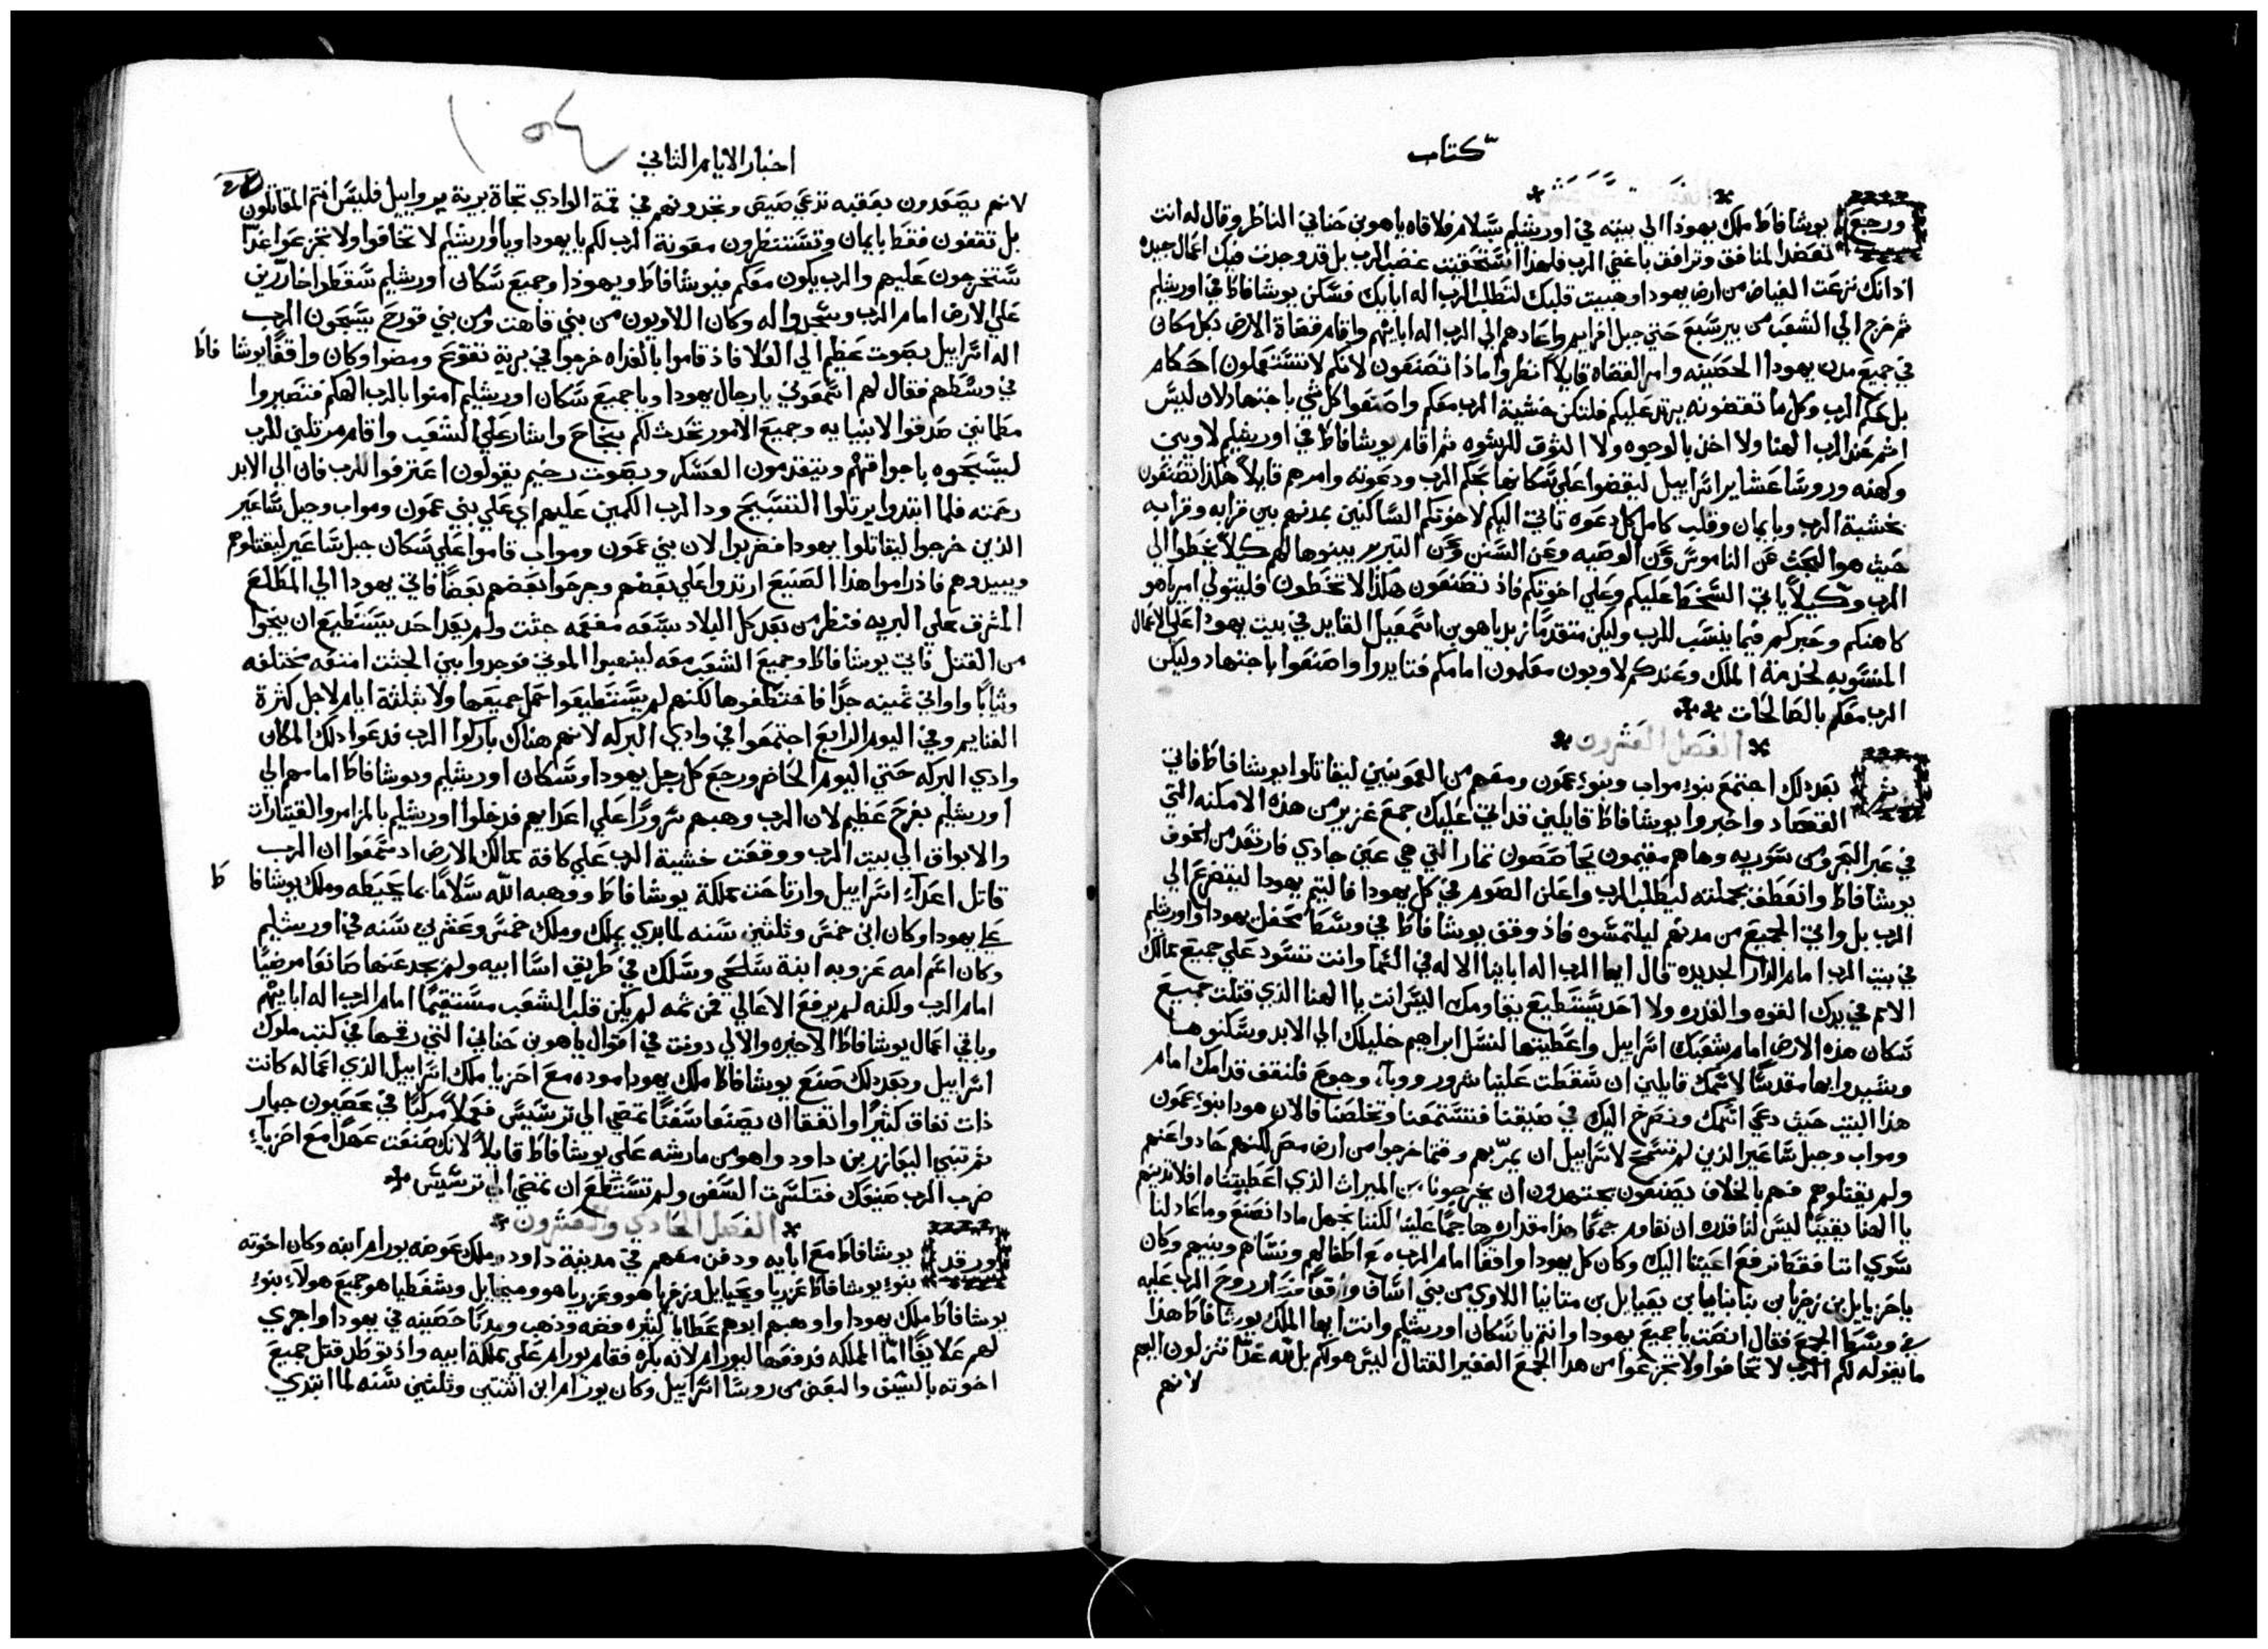 كتاب
ورجع يوشافاط ملك يهودا الى بيته في اورشليم بسلام فلاقاه ياهو بن حناني الناظر وقال له انت
تعضد المنافق وترافق باغضي الرب فلهذا استحقيت غضب الرب بل قد وجدت فيك اعمال جيده
اذ انك نزعت الغياض من ارض يهودا وهييت قلبك لتطلب الرب اله ابايك فسكن يوشافاط في اورشليم
ثم خرج الي الشعب من بيرسبع حتي جبل افرايم واعادهم الي الرب اله ابايهم واقام قضاة الارض بكل مكان
في جميع مدن يهودا الحصينه وامر القضاه قايلاً انظروا ماذا تصنعون لانكم لا تستعملون احكام
بل حكم الرب وكل ما تقضونه يرتد عليكم فلتكن خشية الرب معكم واصنعوا كل شي باجتهاد لان ليس
اثم عند الرب الهنا ولا اخذ بالوجوه ولا التوق للرشوه ثم اقام يوشافاط في اورشليم لاويين
وكهنه وروسا عشاير اسراييل ليقضوا علي سكانها بحكم الرب ودعوته وامرهم قايلاً هكذا تصنعون
بخشية الرب وبايمان وقلب كامل كل دعوه تاتي اليكم لاخوتكم الساكنين بمدنهم بين قرابه وقرابه
حيث هو البحث عن الناموس وعن الوصيه وعن السنن وعن التبرير بينوها لهم كيلا يخطوا الي
الرب وكيلا ياتي السخط عليكم وعلي اخوتكم فاذ تصنعون هكذا لا تخطون فليتولي امريا هو
كاهنكم وحبركم فيما ينسب للرب وليكن متقدما زبديا هو بن اسمعيل القايد في بيت يهودا علي الاعمال
المنسوبه لخدمة الملك وعندكم لاويون معلمون امامكم فتايدوا واصنعوا باجتهاد وليكن
الرب معكم بالصالحات
الفصل العشرون
ثم بعد ذلك اجتمع بنو مواب وبنو عمون ومعهم من العمونيين ليقاتلوا يوشافاط فاتي
القصاد واخبروا يوشافاط قايلين قد اتي عليك جمع غزير من هذه الامكنه التي
في عبر البحر ومن سوريه وها هم مقيمون بحاصصون تمارا التي هي عين جادي فارتعد من الخوف
يوشافاط وانعطف بجملته ليطلب الرب واعلن الصوم في كل يهودا فاليتم يهودا ليتضرع الي
الرب بل واتي الجميع من مدنهم ليلتمسوه فاذ وقف يوشافاط في وسط محفل يهودا واورشليم
في بيت الرب امام الدار الجديده قال ايها الرب اله اباينا الاله في السما وانت تسود علي جميع ممالك
الامم في يدك القوه والقدره ولا احد يستطيع يقاومك اليس انت يا الهنا الذي قتلت جميع
سكان هذه الارض امام شعبك اسراييل واعطيتها لنسل ابراهيم خليلك الي الابد وسكنوها
وشيدوا بها مقدسا لاسمك قايلين ان سقطت علينا شرور ووبآ وجوع فلنقف قدامك امام
هذا البيت حيث دعي اسمك ونصرخ اليك في ضيقنا فتستمعنا وتخلصنا فالان هودا بنو عمون
ومواب وجبل ساعير الذين لم تسمح لاسراييل ان يمر بهم وقتما خرجوا من ارض مصر لكنهم حادوا عنهم
ولم يقتلوهم فهم بالخلاف يصنعون يجتهدون ان يخرجونا من الميراث الذي اعطيتناه افلا تدينهم
يا الهنا يقينا ليس لنا قدره ان نقاوم جمعا هذا مقداره هاجما علينا لكننا نجهل ماذا نصنع وما عاد لنا
سوي اننا فقط نرفع اعيننا اليك وكان كل يهودا واقفا امام الرب مع اطفالهم ونساهم وبنيهم وكان
ياحزيايل بن زخريا بن بنايا بن يعيايل بن متانيا اللاوي من بني اساف واقفا فصار روح الرب عليه
في وسط الجمع فقال انصت يا جميع يهودا وانتم يا سكان اورشليم وانت ايها الملك يوشافاط هذا
ما يقوله لكم الرب لا تخافوا ولا تجزعوا من هذا الجمع الغفير القتال ليس هو لكم بل لله غدا تنزلون اليهم
لانهم
١٥٤
اخبار الايام الثاني
لانهم يصعدون بعقبه تدعي صيص وتجدونهم في قمة الوادي تجاة برية يرواييل فليس انتم المقاتلون
بل تقفون فقط بايمان وتستنظرون معونة الرب لكم يا يهودا ويا اورشليم لا تخافوا ولا تجزعوا غدا
ستخرجون عليهم والرب يكون معكم فيوشافاط ويهوذا وجميع سكان اورشليم سقطوا خارين
علي الارض امام الرب وسجدوا له وكان اللاويون من بني قاهت ومن بني قورح يسبحون الرب
اله اسراييل بصوت عظيم الي العلا فاذ قاموا بالغداه خرجوا في برية تقوع ومضوا وكان واقفا يوشافاط
في وسطهم فقال لهم اسمعوني يا رجال يهودا ويا جميع سكان اورشليم امنوا بالرب الهكم فتصيروا
مطمانين صدقوا لانبيايه وجميع الامور تحدث لكم بنجاح واشار علي الشعب واقام مرتلين للرب
ليسبحوه باجواقهم ويتقدمون العسكر وبصوت رخيم يقولون اعترفوا للرب فان الي الابد
رحمته فلما ابتدوا يرتلوا التسبيح رد الرب الكمين عليهم اي علي بني عمون ومواب وجبل ساعير
الذين خرجوا ليقاتلوا يهودا فضربوا لان بني عمون ومواب قاموا علي سكان جبل ساعير ليقتلوهم
ويبيدوهم فاذ راموا هذا الصنيع ارتدوا علي بعضهم وجرحوا بعضهم بعضا فاتي يهودا الي المطلع
المشرف علي البريه فنظر من بعد كل البلاد سبعه مفعمه جثث ولم بعد احد يستطيع ان ينجوا
من القتل فاتي يوشافاط وجميع الشعب معه لينهبوا الموتي فوجدوا بين الجثث امتعه مختلفه
وثيابا واواني ثمينه جدا فاختطفوها لكنهم لم يستطيعوا حمل جميعها ولا بثلثة ايام لاجل كثرة
الغنايم وفي اليوم الرابع اجتمعوا في وادي البركه لانهم هناك باركوا الرب فدعوا ذلك المكان
وادي البركه حتي اليوم الحاضر ورجع كل رجل يهودا وسكان اورشليم ويوشافاط امامهم الي
اورشليم بفرح عظيم لان الرب وهبهم سرورا علي اعدايهم فدخلوا اورشليم بالمزامر والقيتارات
والابواق الي بيت الرب ووقعت خشية الرب علي كافة ممالك الارض اذ سمعوا ان الرب
قاتل اعدآء اسراييل وارتاحت مملكة يوشافاط ووهبه الله سلاما بما يحيطه وملك يوشافاط
علي يهودا وكان ابن خمس وثلثين سنه لما بدي يملك وملك خمس وعشرين سنه في اورشليم
وكان اسم امه عزوبه ابنة سلحي وسلك في طريق اسا ابيه ولم يحد عنها صانعا مرضيا
امام الرب ولكنه لم يرفع الاعالي فمن ثمه لم يكن قلب الشعب مستقيما امام الرب اله ابايهم
وباقي اعمال يوشافاط الاخيره والاولي دونت في اقوال ياهو بن حناني التي رقمها في كتب ملوك
اسراييل وبعد ذلك صنع يوشافاط ملك يهودا موده مع احزيا ملك اسراييل الذي اعماله كانت
ذات نفاق كثيرا واتفقا ان يصنعا سفنا تمضي الي ترشيس فعملا مركبا في عصيون جبار
ثم تنبي اليعازر بن داود واهو من مارشه علي يوشافاط قايلاً لانك صنعت عهدا مع احزيآء
ضرب الرب صنيعك فتكسرت السفن ولم تستطع ان تمضي الي ترشيس
الفصل الحادي والعشرون
ورقد يوشافاط مع ابايه ودفن معهم في مدينة داود وملك عوضه يورام ابنه وكان اخوته
بنو يوشافاط عزريا ويحيايل وزخريا هو وعزريا هو وميخايل وشفطيا هو جميع هولاء بنو
يوشافاط ملك يهودا ووهبهم ابوهم عطايا كثيره فضه وذهب ومدنا حصينه في يهودا واجري
لهم علايفا اما المملكه فدفعها ليورام لانه بكره فقام يورام علي مملكة ابيه واذ توطد قتل جميع
اخوته بالسيف والبعض من روسا اسراييل وكان يورام ابن اثنتين وثلثين سنه لما ابتدي